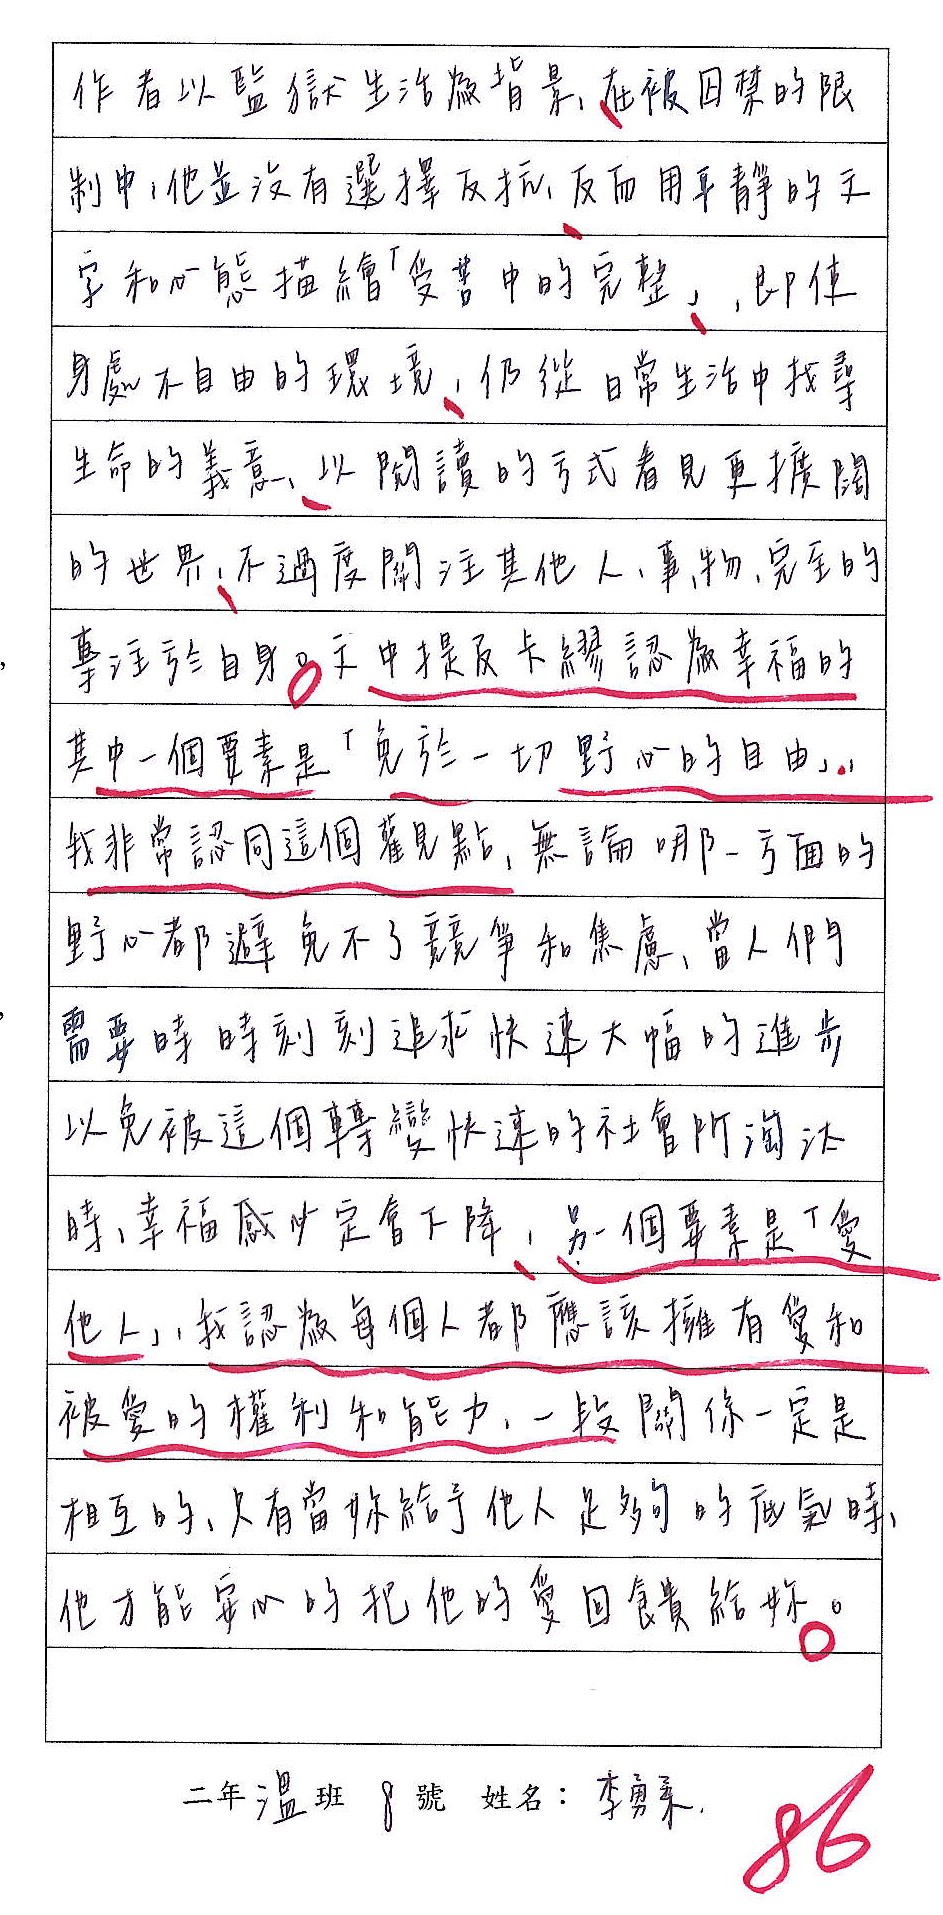 作者以監獄生活為背景，在被囚禁的限
制中，他並沒有選擇反抗，反而用平靜的文
字和心態描繪「受苦中的完整」，即使
身處不自由的環境，仍從日常生活中找尋
生命的義意，以閱讀的方式看見更擴闊
的世界，不過度關注其他人、事、物，完全的
專注於自身。文中提及卡繆認為幸福的
其中一個要素是「免於一切野心的自由」，
我非常認同這個觀點，無論哪一方面的
野心都避免不了競爭和焦慮，當人們
需要時時刻刻追求快速大幅的進步
以免被這個轉變快速的社會所淘汰
時，幸福感必定會下降，另一個要素是「愛
他人」，我認為每個人都應該擁有愛和
被愛的權利和能力，一段關係一定是
相互的，只有當妳給予他人足夠的底氣時，
他才能安心的把他的愛回饋給妳。
二年溫班 8號 姓名：李勇柔
86